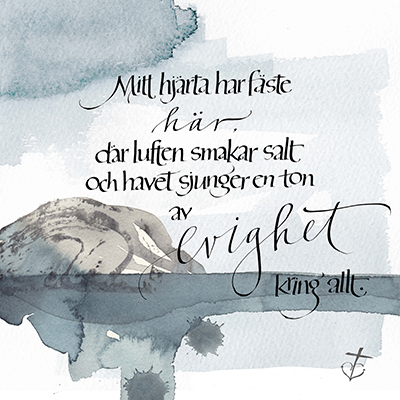 Mitt hjärta har fäste
här,
där luften smakar salt
och havet sjunger en ton
av
evighet
kring allt.